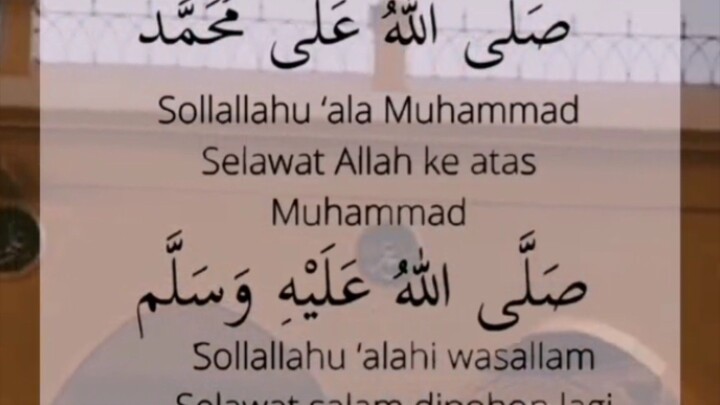 صَلَّى اللهُ عَلَى مُحَمَّد
Sollallahu ‘ala Muhammad
Selawat Allah ke atas
Muhammad
صَلَّى اللهُ عَلَيْهِ وَسَلَّم
Sollallahu ‘alahi wasallam
Selawat salam dipohon lagi